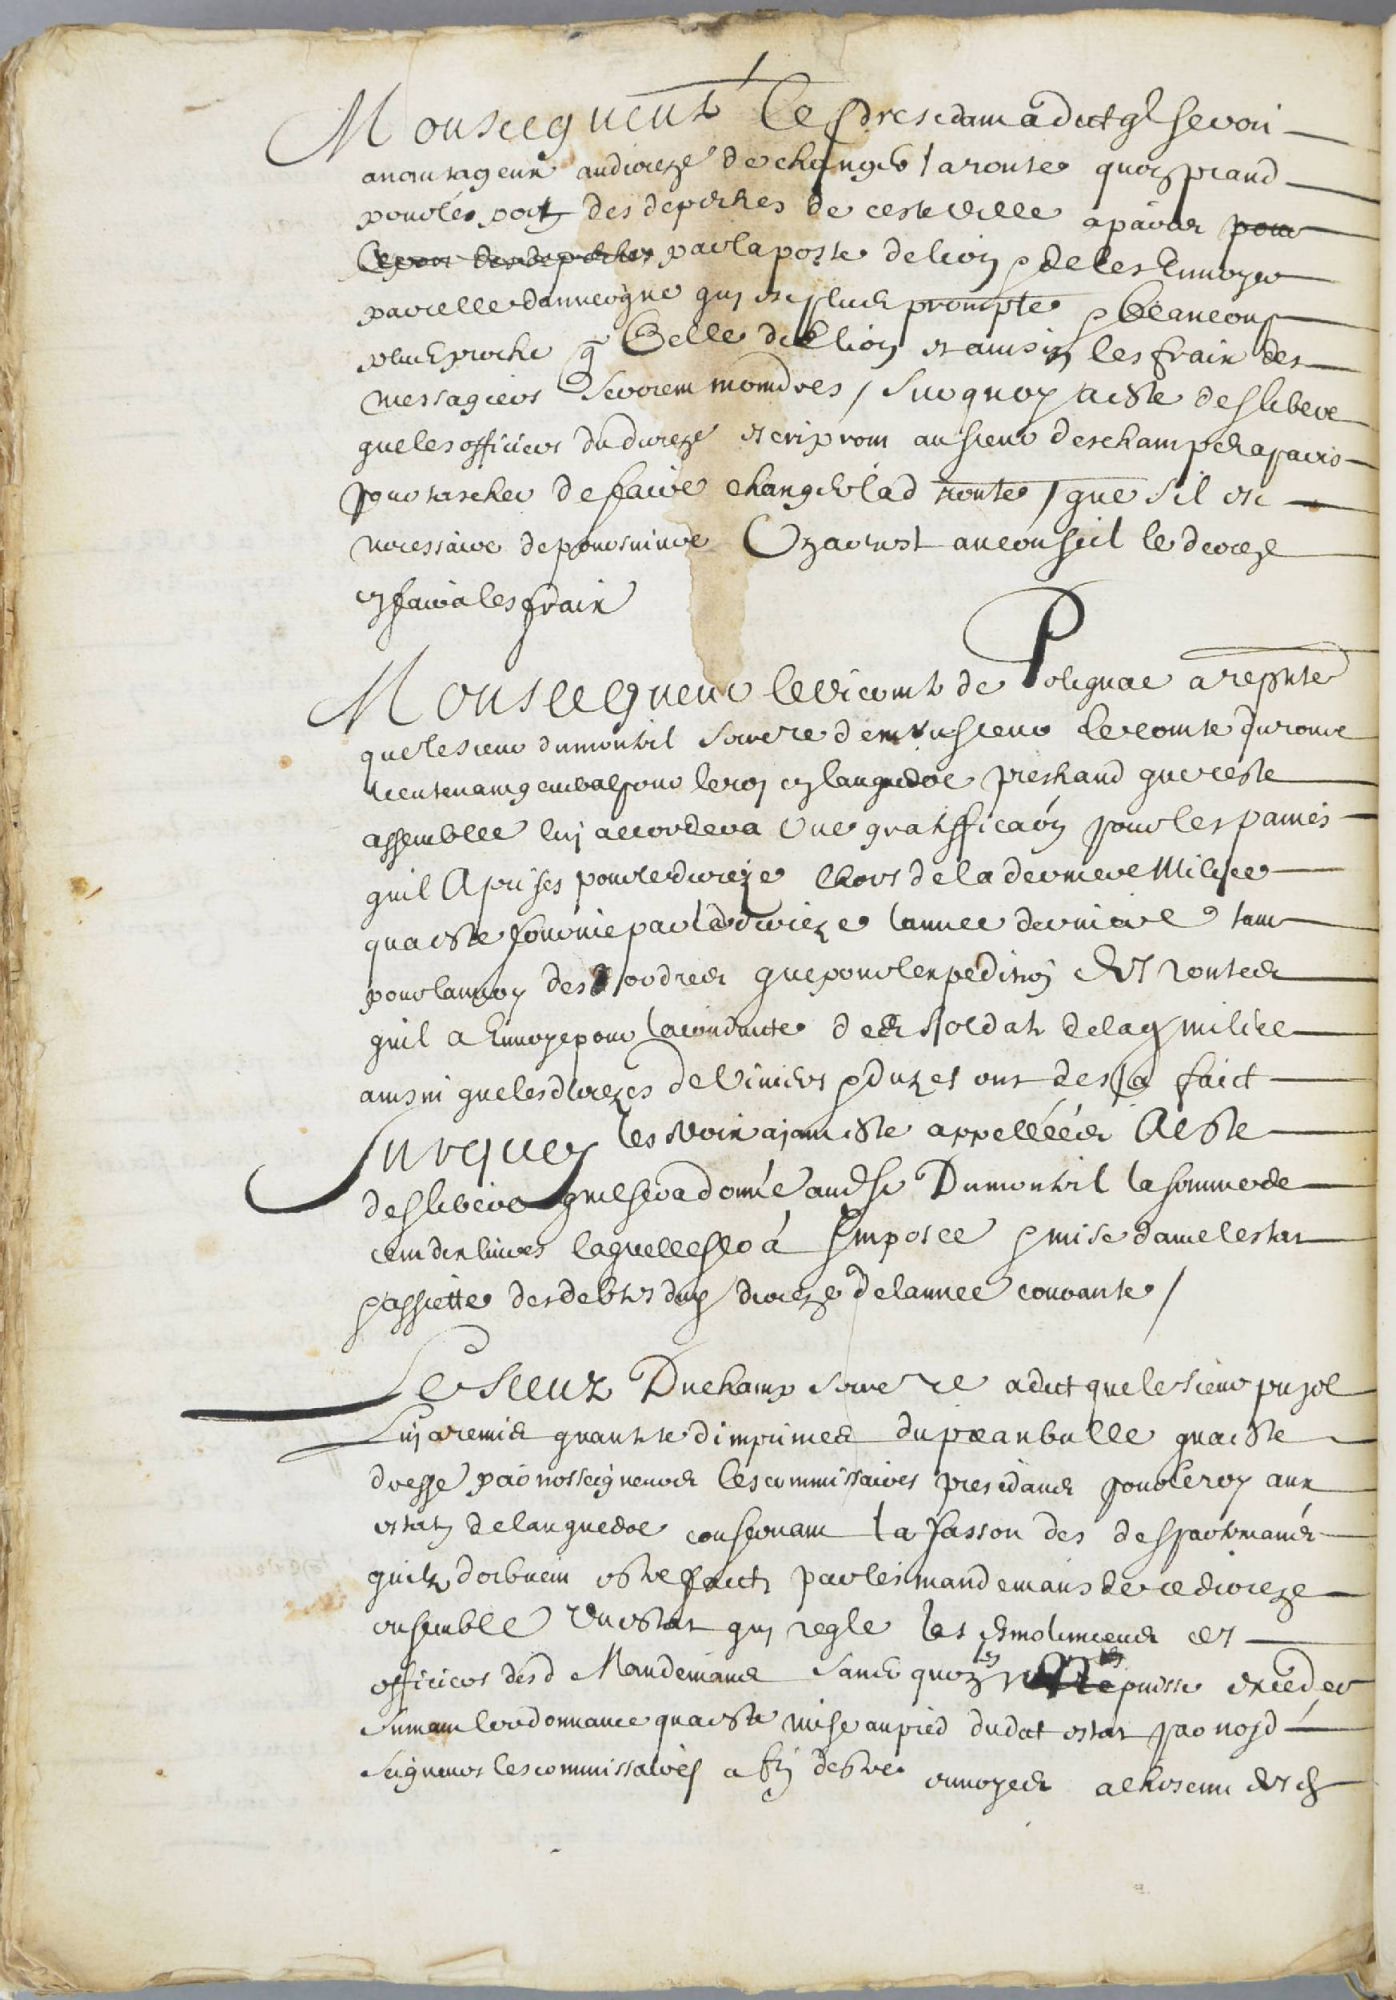 Monseigneur le presidant a dict ql seroit
avantageux au dioceze de changer la route quon prand
pour les portz des depeches de ceste ville a paris pour
le port des depeches par la poste de lion & de les Envoyer
par celle dauvergne quy est plus prompte & beaucoup
plus proche q Celle de lion et ainsin les fraix des
messagiers seroient moindres / Sur quoy a esté deslibere
que les officiers du dioceze escriront au sieur deschamps a paris
pour tascher de faire changer lad route / que sil est
necessaire de poursuivre Un arrest au conseil le dioceze
en faira les fraix
Monseigneur le vicomte de Polignac a repnté
que le sieur dumonteil secre de monsieur le comte du roure
lieutenant genal pour le roy en languedoc prethand que ceste
assemblee luy accordera Une gratifficaon pour les paines
quil A prises pour le dioceze lhors de la derniere Milice
qua esté fournie par le dioceze lannee derniere tant
pour lanvoy des ordres que pour lexpedition des routes
quil a Envoye pour la conduitte des soldatz de lad milice
ainsin que les diocezes de viviers & duzes ont desja faict
Surquoy les voix ajant esté appellées A esté
deslibere quil sera donné aud sr Dumonteil la somme de
cent dix livres laquelle sera Imposee & mise dans lestat
& assiette des debtes dud dioceze de lannee courante /
Le sieur Duchamp secre a dict que le sieur pujol
Luy a remis quantite dimprimes du preanbulle qua esté
dresse par nosseigneurs les commissaires presidans pour le roy aux
estatz de languedoc concernant la fasson des despartemans
quilz doibvent estre faictz par les mandemans de ce dioceze
ensemble Un estat quy regle les esmolumens des
officiers desd Mandemans sans quon les puisse exceder
suivant lordonnance qua esté mise au pied dudt estat par nosd
seigneurs les commissaires a fin destre envoyes a chascun desd